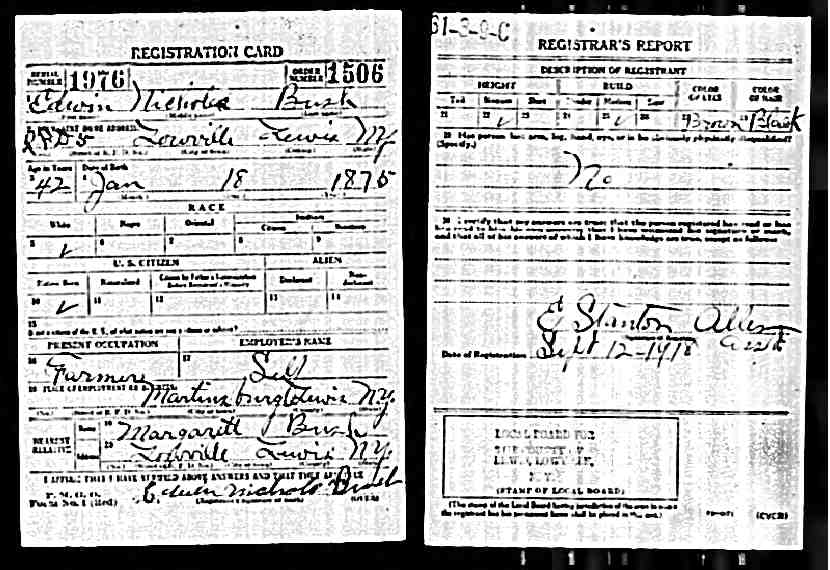 REGISTRATION CARD
SERIAL NUMBER 1976 ORDER NUMBER 1506
Edwin Nicholas Bush
R F D 5 Lowville Lewis NY
Age in Years Date of Birth
42 Jan 18 1875
RACE
White Negro Oriental Indian
Citizen
5 ✓ 6 7 8 9
U. S. CITIZEN ALIEN
Native Born Naturalized Citizen by Father's Naturalization Before Registrant's Majority Declarant Non-declarant
10 ✓ 11 12 13 14
15
If not a citizen of the U. S., of what nation are you a citizen or subject?
PRESENT OCCUPATION EMPLOYER'S NAME
16 Farmer 17 Self
18 PLACE OF EMPLOYMENT OR BUSINESS
Martinsburg Lewis NY.
NEAREST RELATIVE Name 19 Margarett Bush
Address 20 Lowville Lewis NY.
I AFFIRM THAT I HAVE VERIFIED ABOVE ANSWERS AND THAT THEY ARE TRUE
P. M. G. O.
Form No. 1 (Red) Edwin Nicholas Bush
(Registrant's signature or mark) (OVER)
61-3-9-C
REGISTRAR'S REPORT
DESCRIPTION OF REGISTRANT
HEIGHT BUILD COLOR OF EYES COLOR OF HAIR
Tall Medium Short Slender Medium Stout
21 22 ✓ 23 24 25 ✓ 26 27 Brown 28 Black
29 Has person lost arm, leg, hand, eye, or is he obviously physically disqualified?
(Specify.)
No
30 I certify that my answers are true; that the person registered has read or has
had read to him his own answers; that I have witnessed his signature or mark,
and that all of his answers of which I have knowledge are true, except as follows:
E Stanton Allen
Date of Registration Sept 12-1918 asst
LOCAL BOARD FOR
THE COUNTY OF
LEWIS, LOWVILLE,
N.Y.
(STAMP OF LOCAL BOARD)
(The stamp of the Local Board having jurisdiction of the area in which
the registrant has his permanent home shall be placed in this box.)
(OVER)